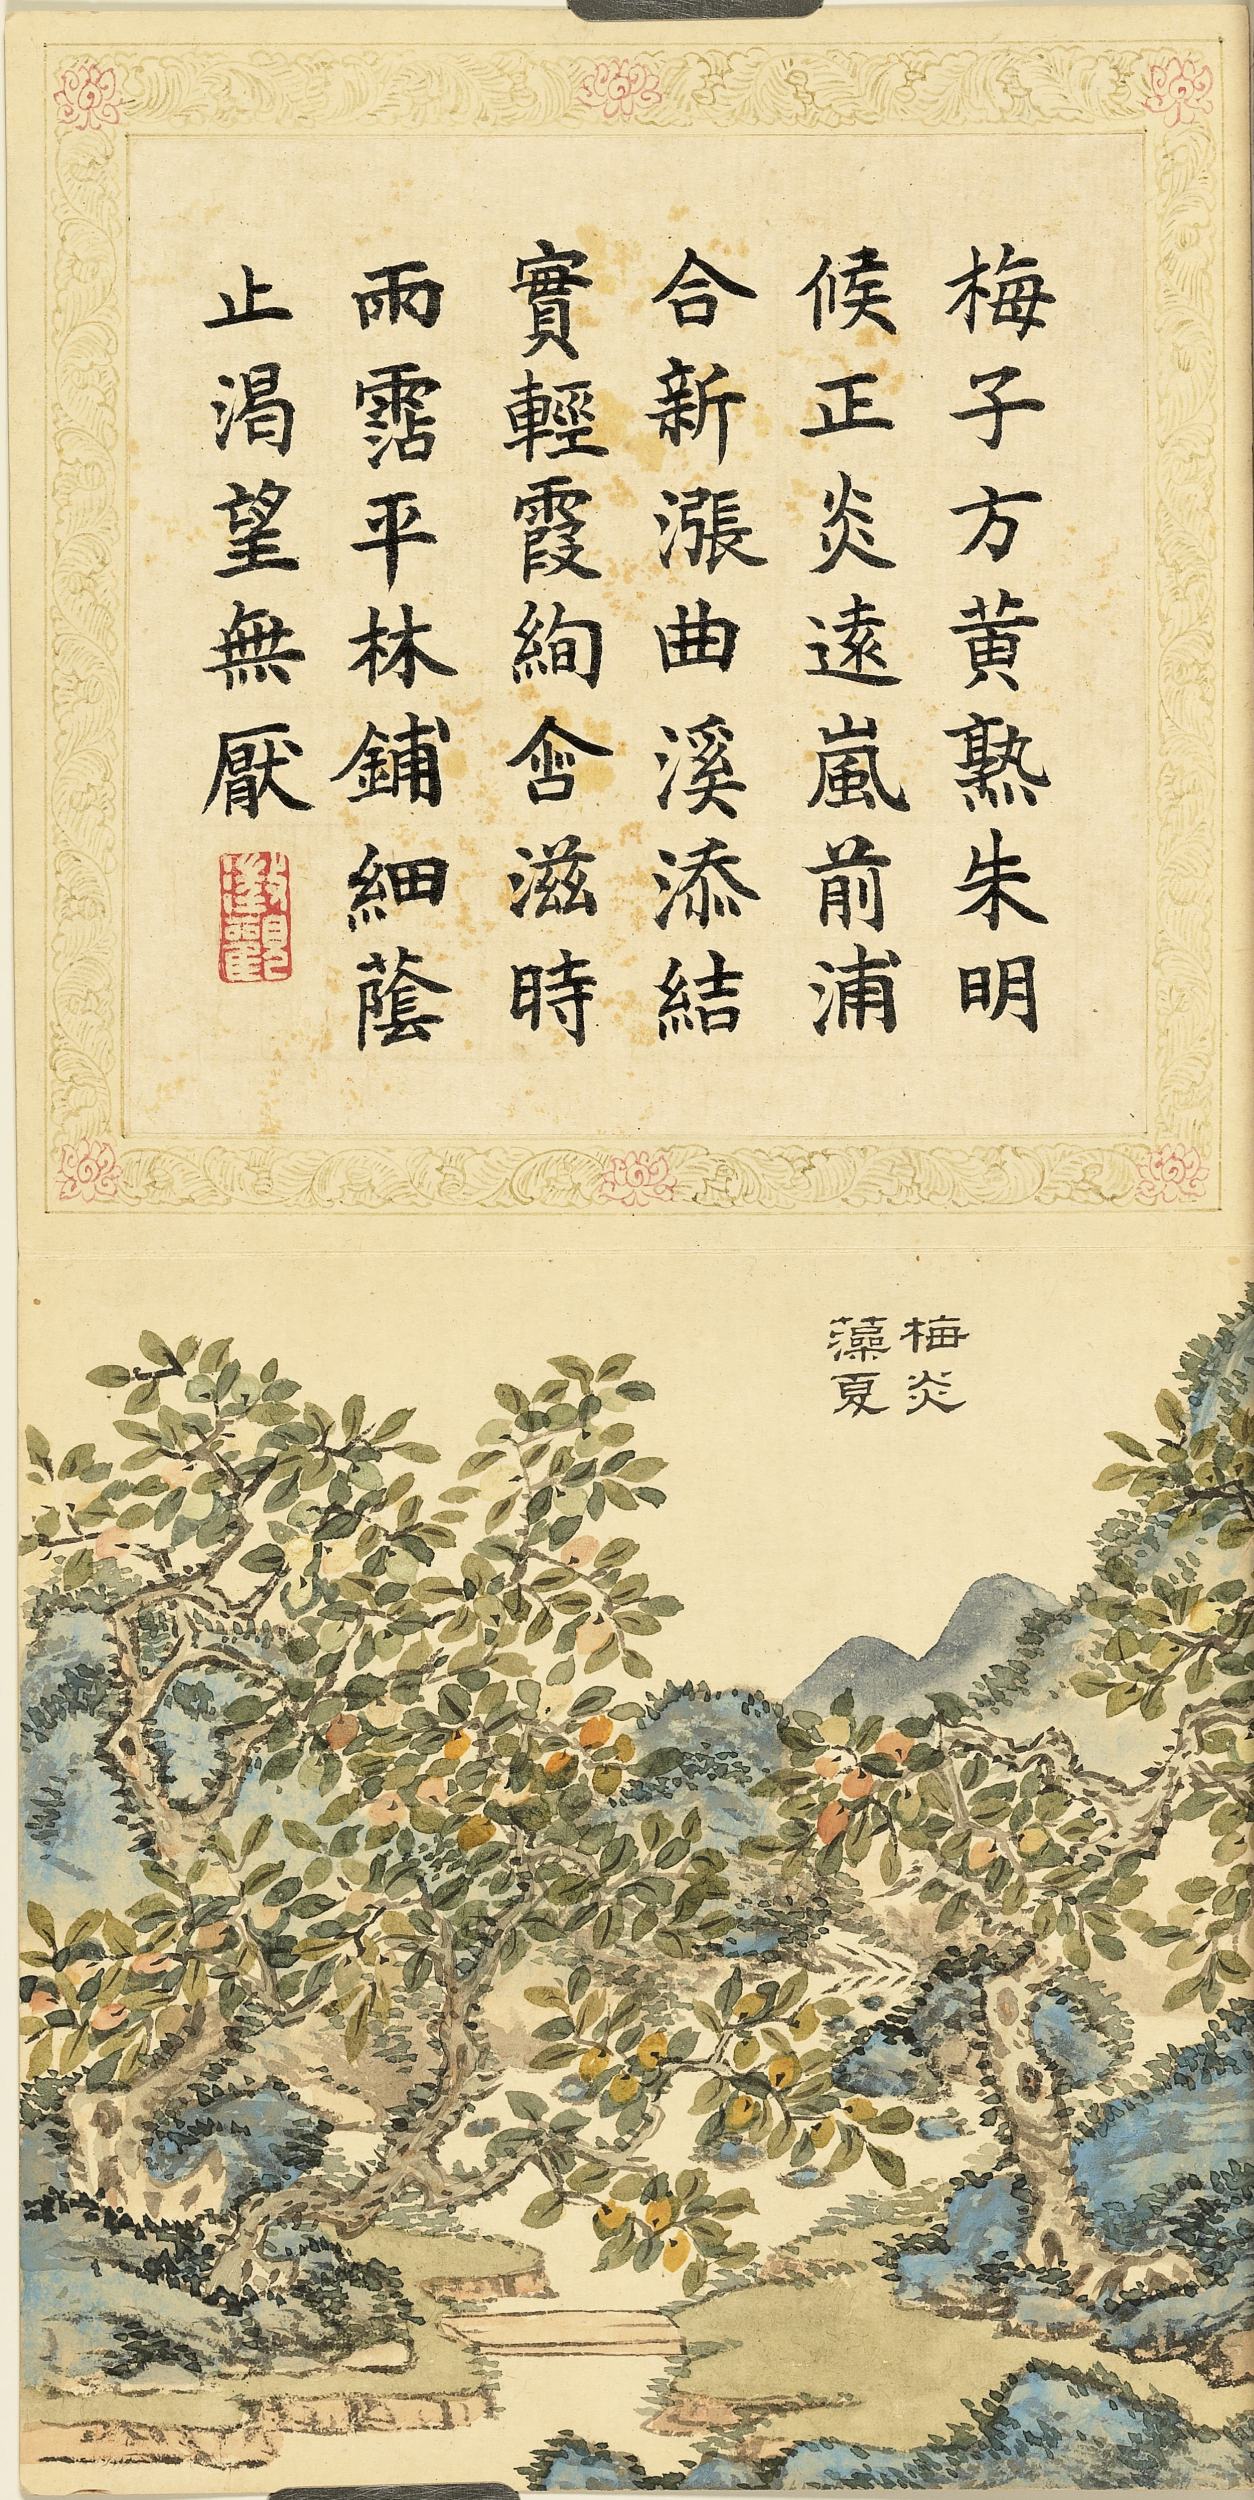 梅子方黄熟朱明
候正炎遠嵐前浦
合新漲曲溪添結
實輕霞絢含滋時
雨霑平林鋪細蔭
止渴望無厭
梅炎
藻夏